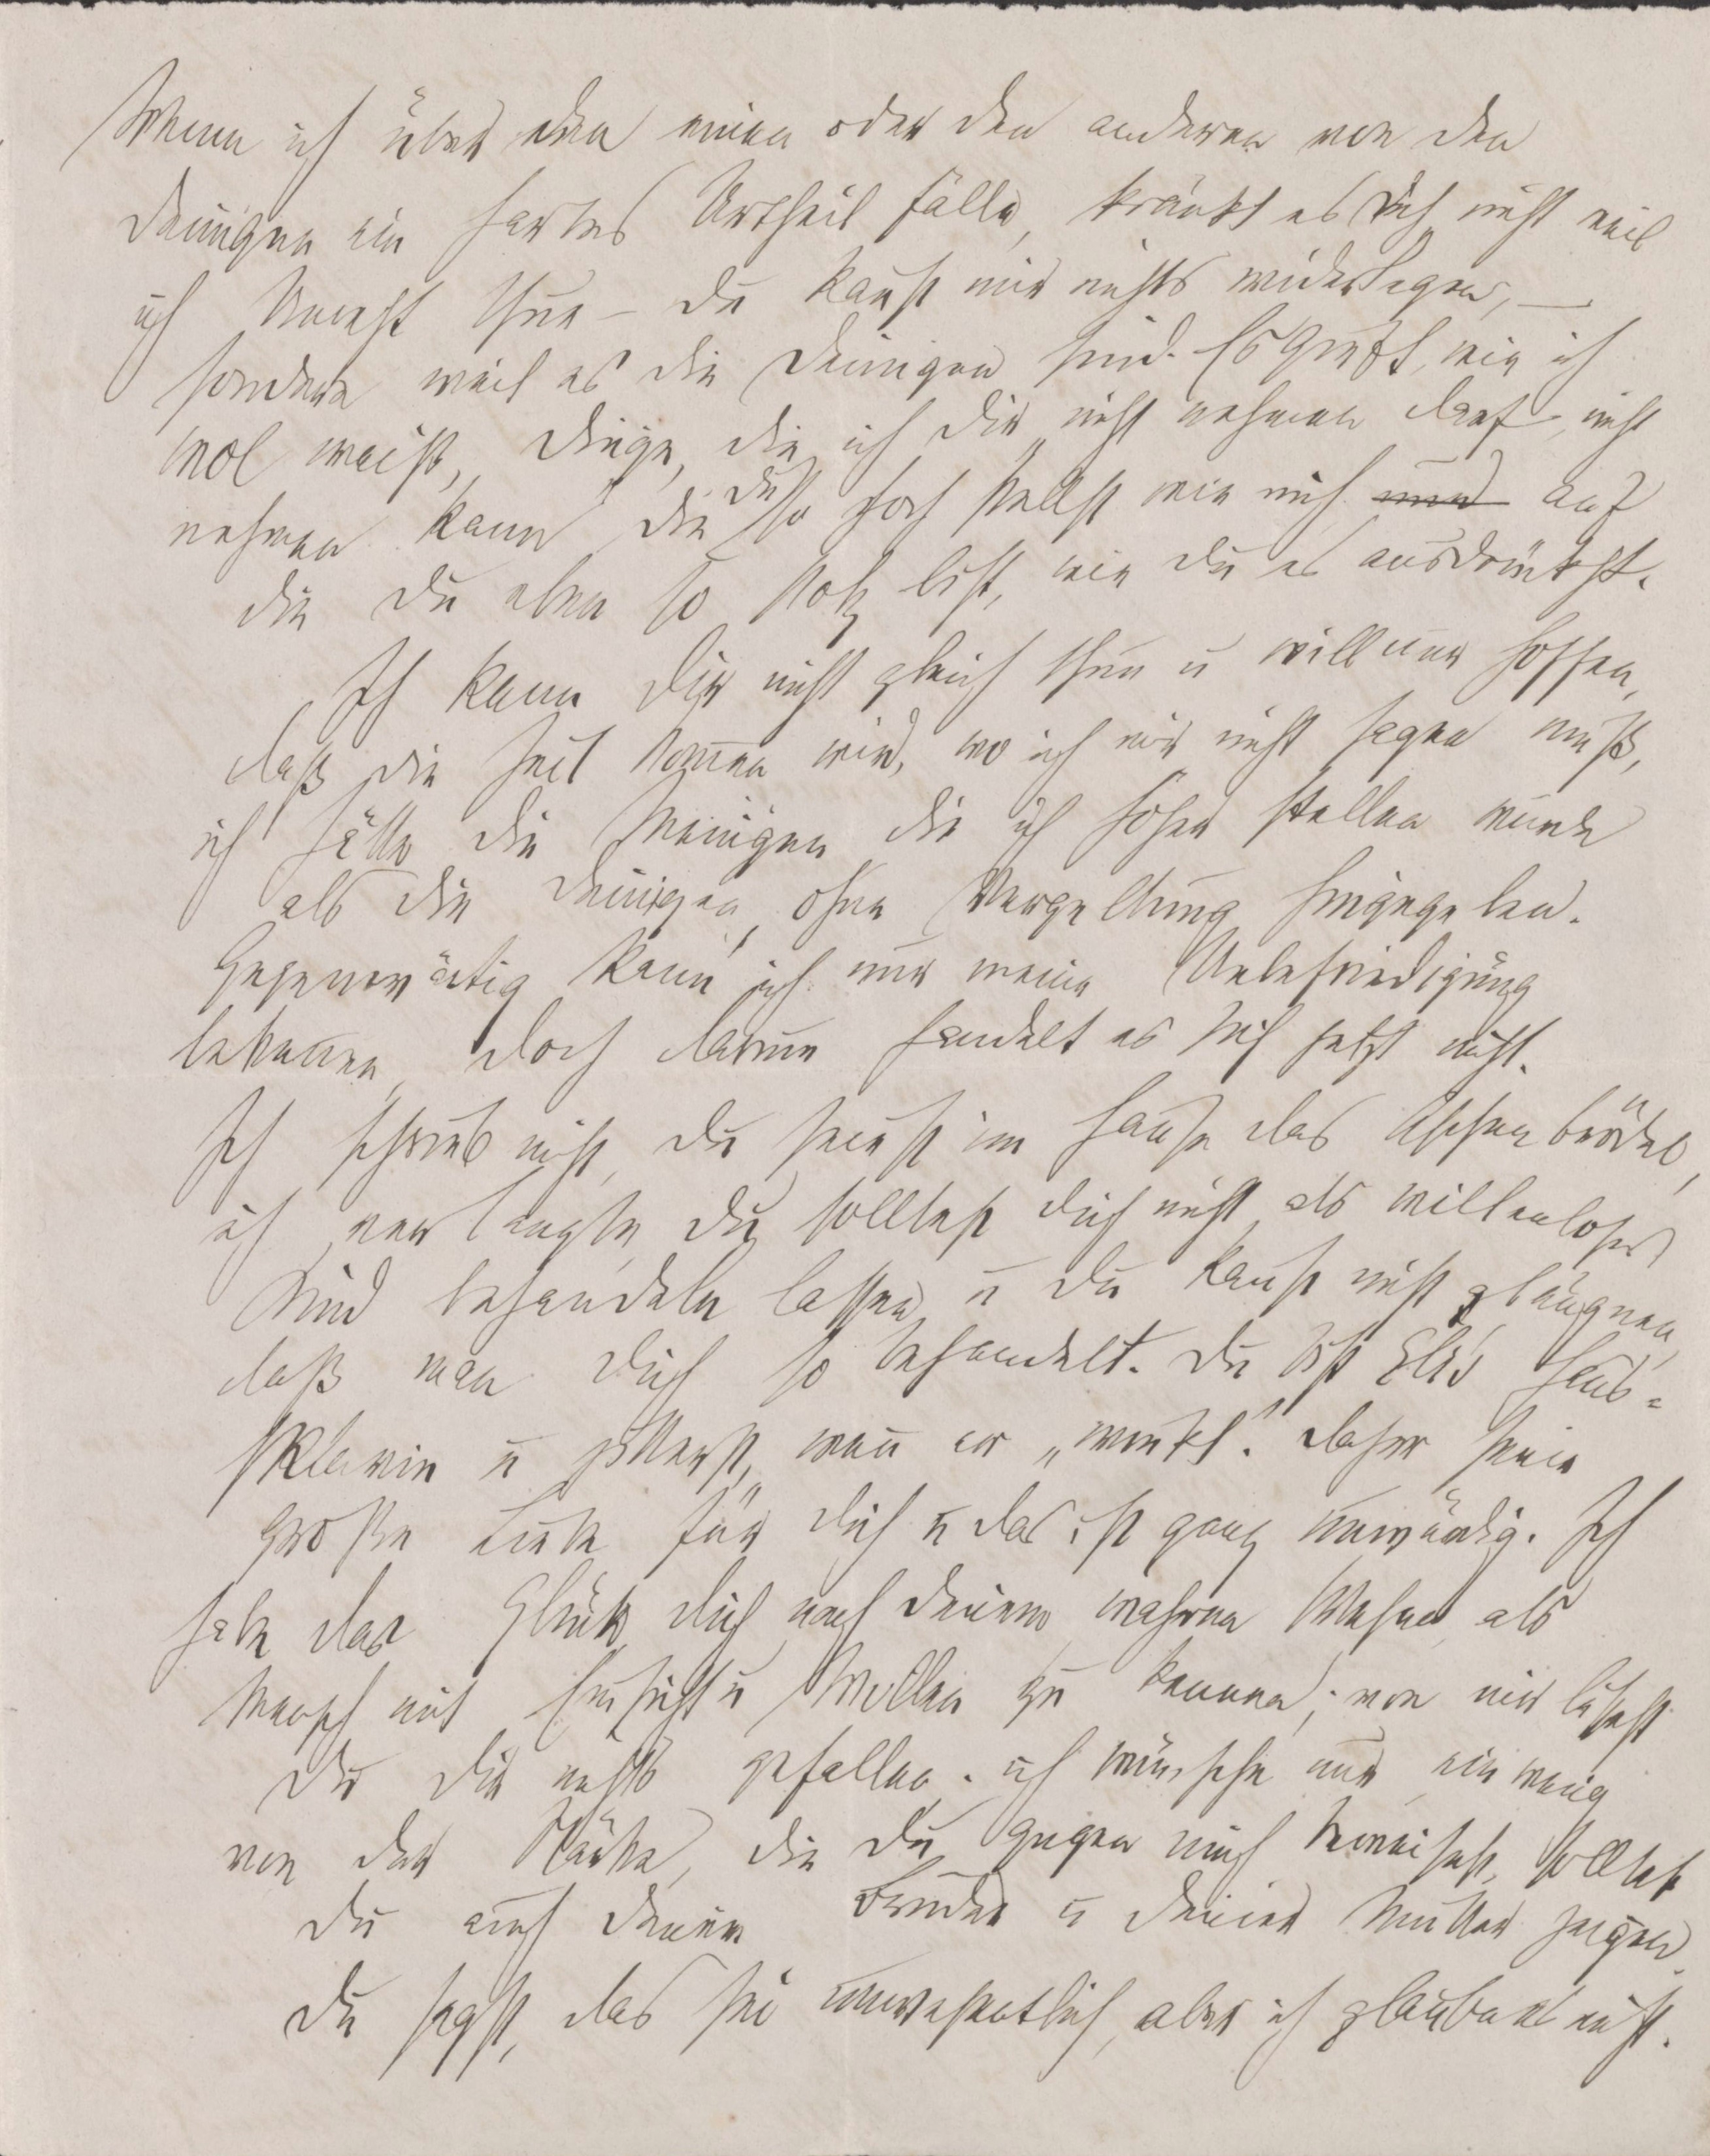 Wenn ich über den einen oder den anderen von den
Deinigen ein hartes Urtheil fälle, kränkt es Dich nicht weil
ich Unrecht thue – Du kannst mir nichts widerlegen, —
sondern weil es die Deinigen sind. Es gibt, wie ich
wol weiß, Dinge, die ich Dir nicht nehmen darf, nicht
nehmen kann die Du so hoch stellst wie mich und auf
die Du eben so stolz bist, wie Du es ausdrückst.
Ich kann Dir nicht gleich thun u will nur hoffen,
daß die Zeit kommen wird, wo ich mir nicht sagen muß,
ich hätte die Meinigen die ich höher stellen würde
als die Deinigen, ohne Vergeltung hingegeben.
Gegenwärtig kann ich nur meine Unbefriedigung
bekennen, doch darum handelt es sich jetzt nicht.
Ich schrieb nicht, Du seiest im Hause das Aschenbrödel,
ich verlangte, Du solltest Dich nicht als willenloses
Kind behandeln lassen, u Du kannst nicht gläugnen,
daß man Dich so behandelt. Du bist Eli's Haus-
sklavin u zitterst, wenn er „muckt". Daher seine
große Liebe für Dich u das ist ganz unwürdig. Ich
habe das Glück, Dich nach Deinem wahren Wesen, als
Mensch mit Einsicht u Willen zu kennen; von mir ließest
Du Dir nichts gefallen. ich wünsche nur, ein wenig
von der Stärke, die Du gegen mich beweisest, solltest
Du auch Deinem Bruder u Deiner Mutter zeigen.
Du sagst, das sei unwesentlich, aber ich glaube es nicht.